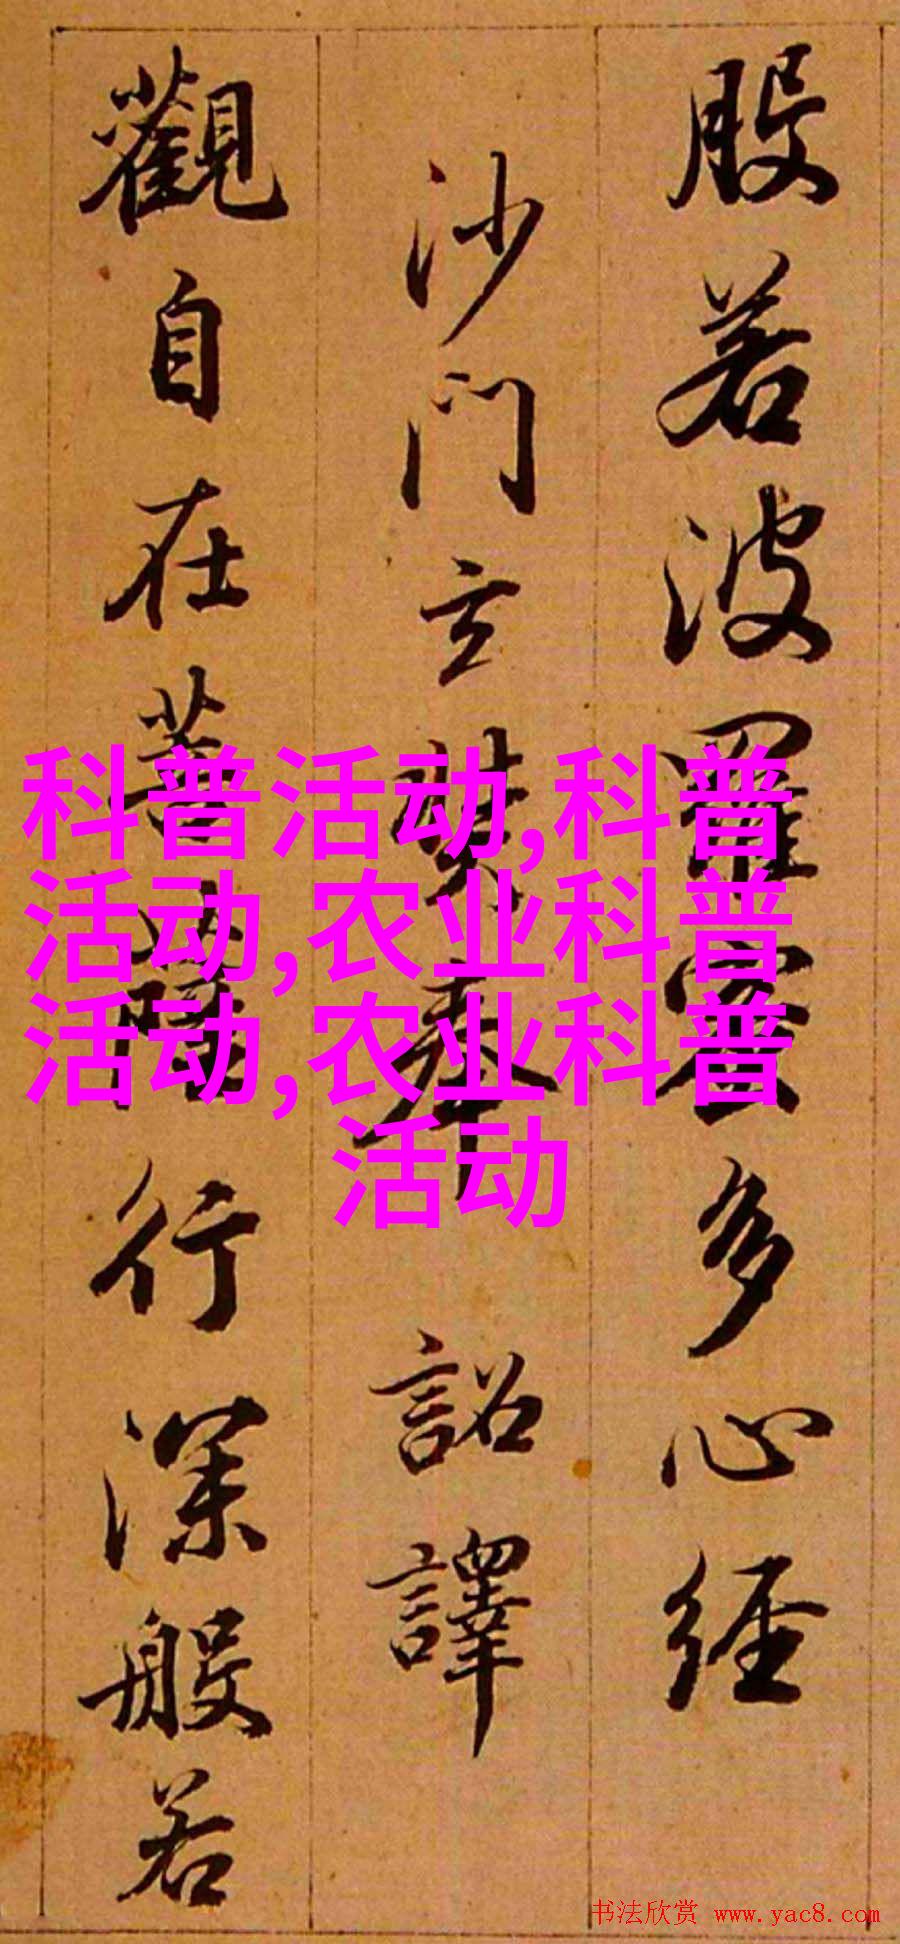 般若波羅蜜多心経
沙門玄奘奉 詔譯
觀自在菩薩行深般若
科普活动,科普
活动,农业科普
活动,农业科普
活动
书法欣赏 www.yac8.com